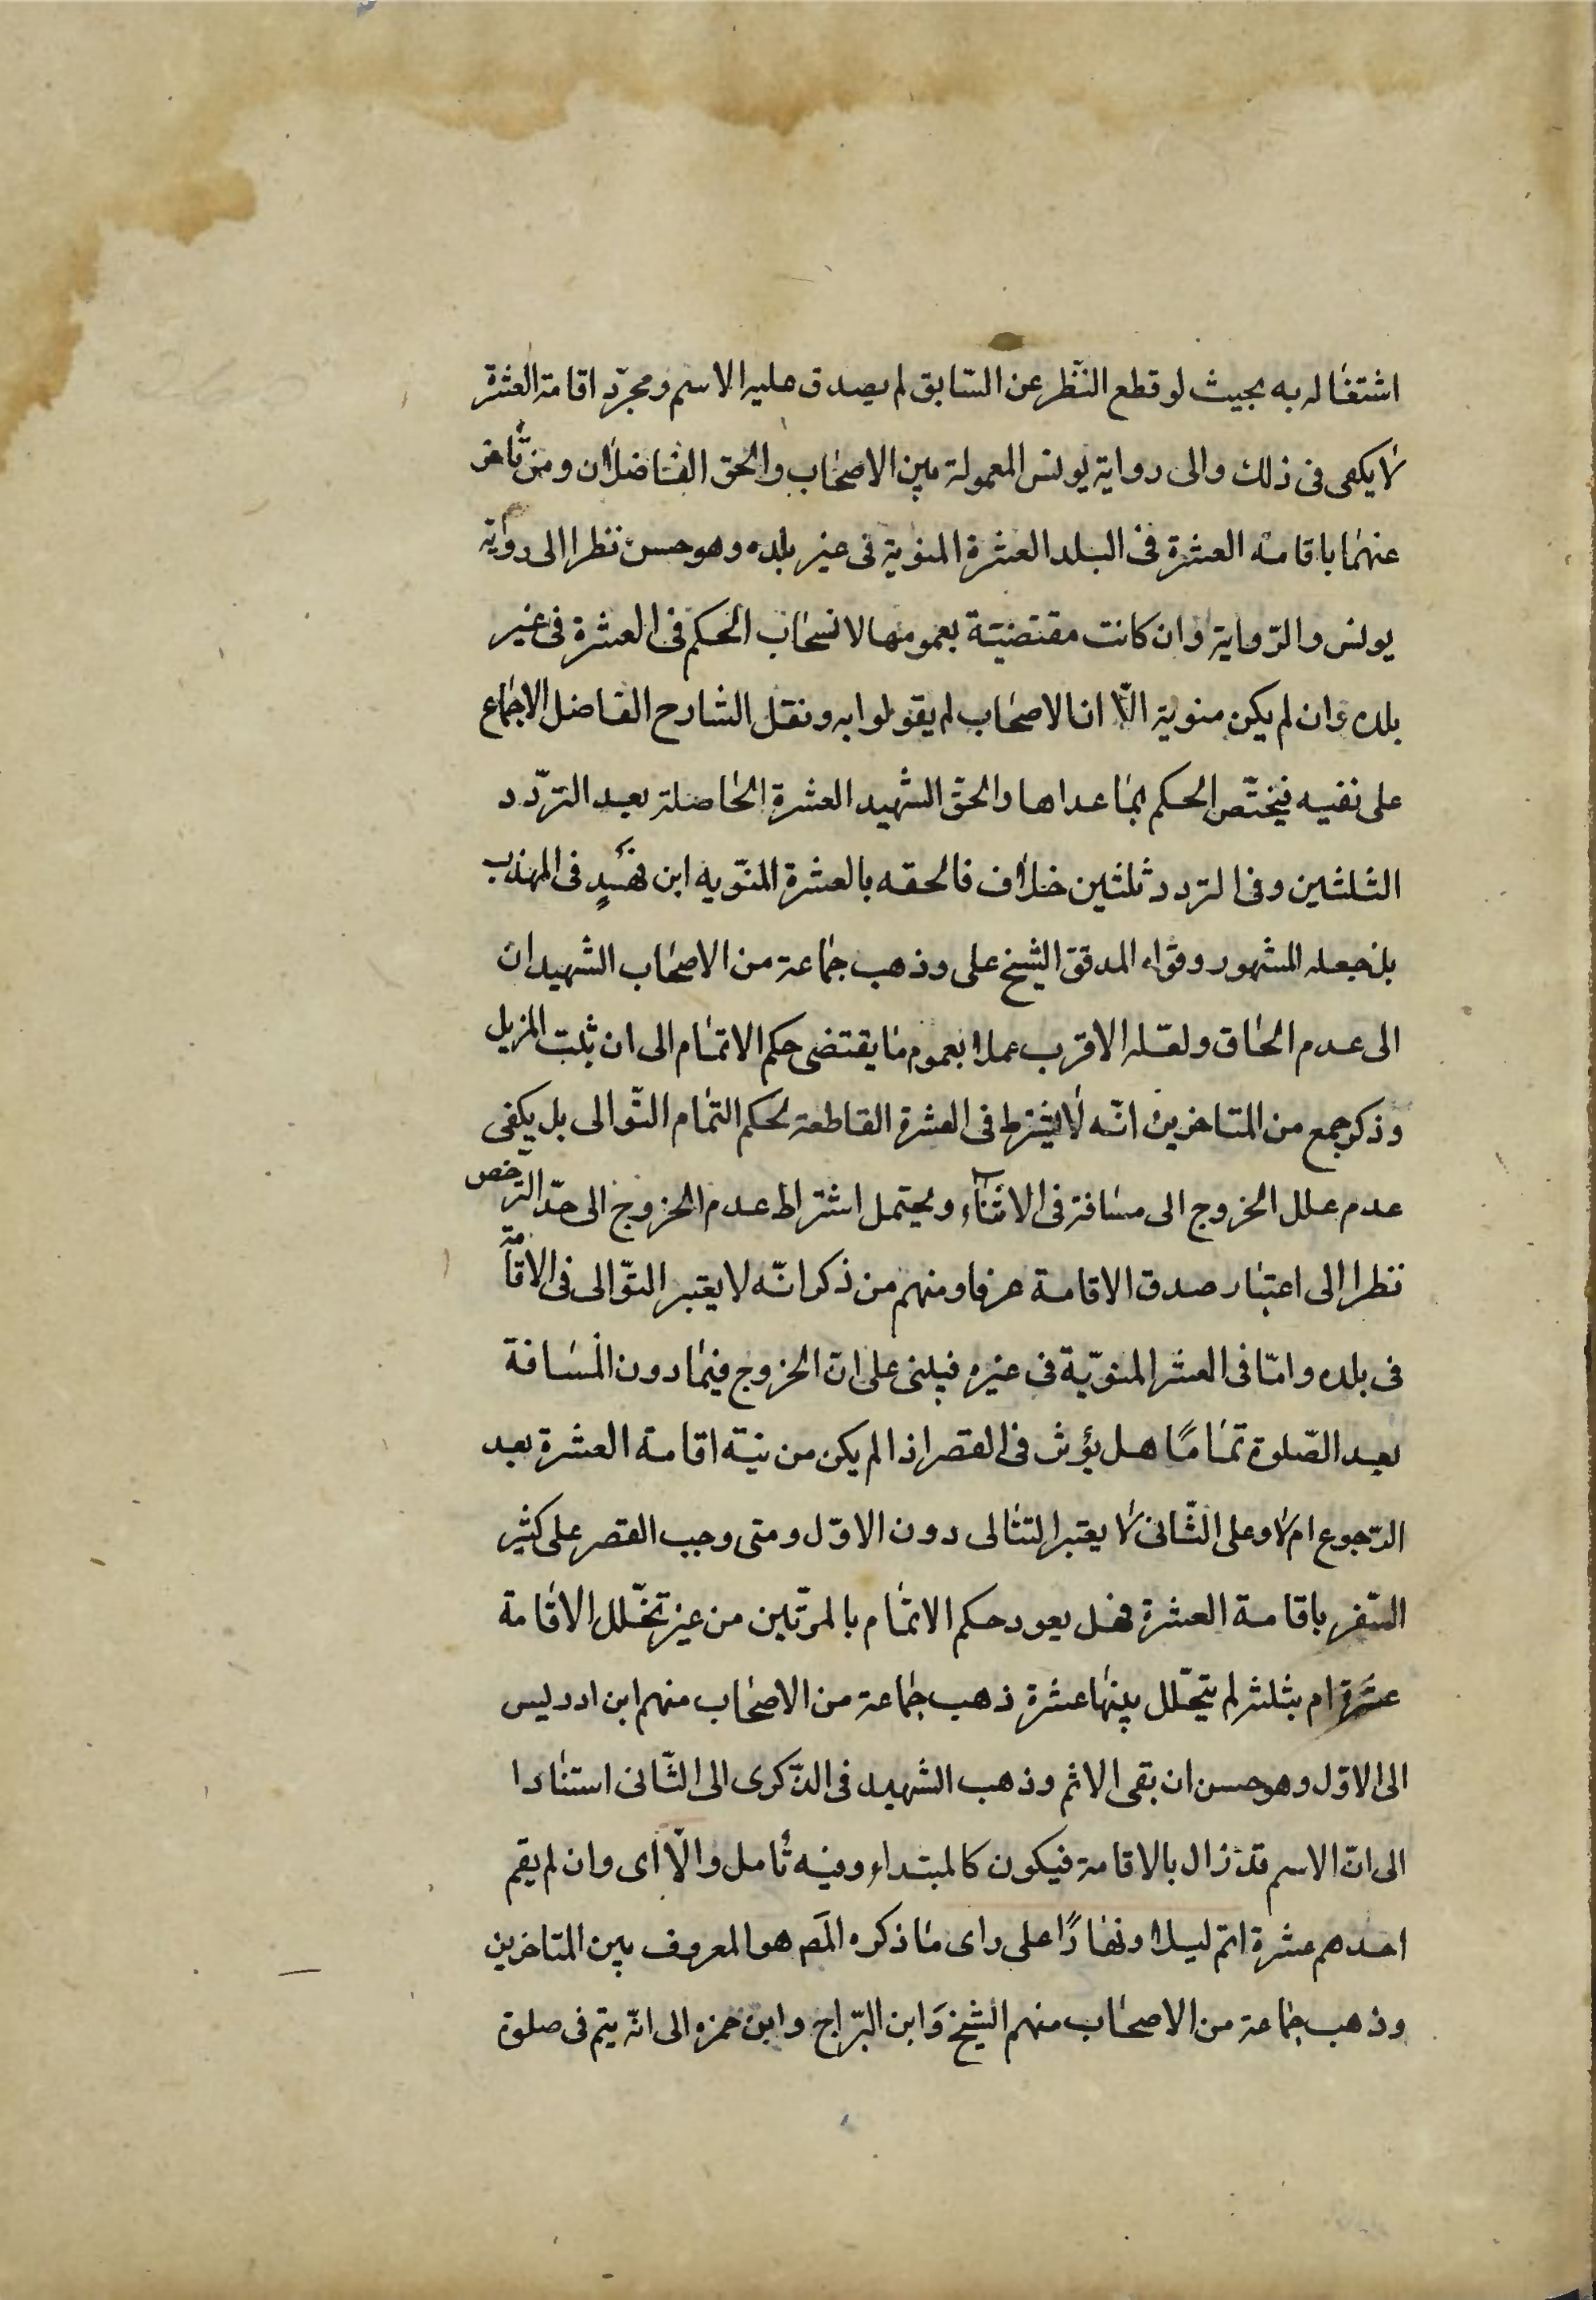 اشتغاله به بحيث لو قطع النّظر عن السّابق لم يصدق عليه الاسم ومجرّد اقامة العشرة
لا يكفى فى ذلك والى رواية يونس المعمولة بين الاصحاب والحق الفاضلان ومن تأخر
عنهما باقامة العشرة فى البلد العشرة المنوية فى غير بلده وهو حسن نظرا الى رواية
يونس والرّواية وان كانت مقتضيّة بعمومها لانسحاب الحكم فى العشرة فى غير
بلده وان لم يكن منوية الّا ان الاصحاب لم يقولوا به ونقل الشارح الفاضل الاجماع
على نفيه فيختّص الحكم بما عداها والحقّ الشّهيد العشرة الحاصلة بعد التردّد
الثلثين وفى التردد ثلثين خلاف فالحقه بالعشرة المنّويه ابن فهيدٍ فى المهذب
بل جعله المشهور وقواه المدقق الشيخ على وذهب جماعة من الاصحاب الشهيدان
الى عدم الحاق ولعّله الاقرب عملا بعموم ما يقتضى حكم الاتمام الى ان يثبت المزيل
وذكر جمع من المتاخرين انّه لا يشترط فى العشرة القاطعة لحكم التمام التّوالى بل يكفى
عدم علل الخروج الى مسافة فى الاثناء ويحتمل اشتراط عدم الخروج الى حدّ الترّخص
نظرا الى اعتبار صدق الاقامة عرفا ومنهم من ذكر انّه لا يعتبر التوّالى فى الاقامة
فى بلده وامّا فى العشر المنويّة فى غيره فيبنى على انّ الخروج فيما دون المسافة
بعد الصّلوة تمامًا هل يؤثر فى القصر اذا لم يكن من نيّته اقامة العشرة بعد
الرّجوع ام لا وعلى الثّانى لا يعتبر التتالى دون الاوّل ومتى وجب القصر على كثير
السّفر باقامة العشرة فهل يعود حكم الاتمام بالمرّتين من غير تخّلل الاقامة
عشرة ام بثلث لم يتخّلل بينها عشرة ذهب جماعة من الاصحاب منهم ابن ادريس
الى الاوّل وهو حسن ان بقى الاثم وذهب الشهيد فى الذّكرى الى الثّانى استنادا
الى انّ الاسم قد زال بالاقامة فيكون كالمبتداء وفيه تأمل والّا اى وان لم يقم
احدهم عشرة اتم ليلا ونهارًا على راى ما ذكره المَص هو المعروف بين المتاخرين
وذهب جماعة من الاصحاب منهم الشيخ وَابن البرّاج وابن حمزه الى انّه يتم فى صلوة